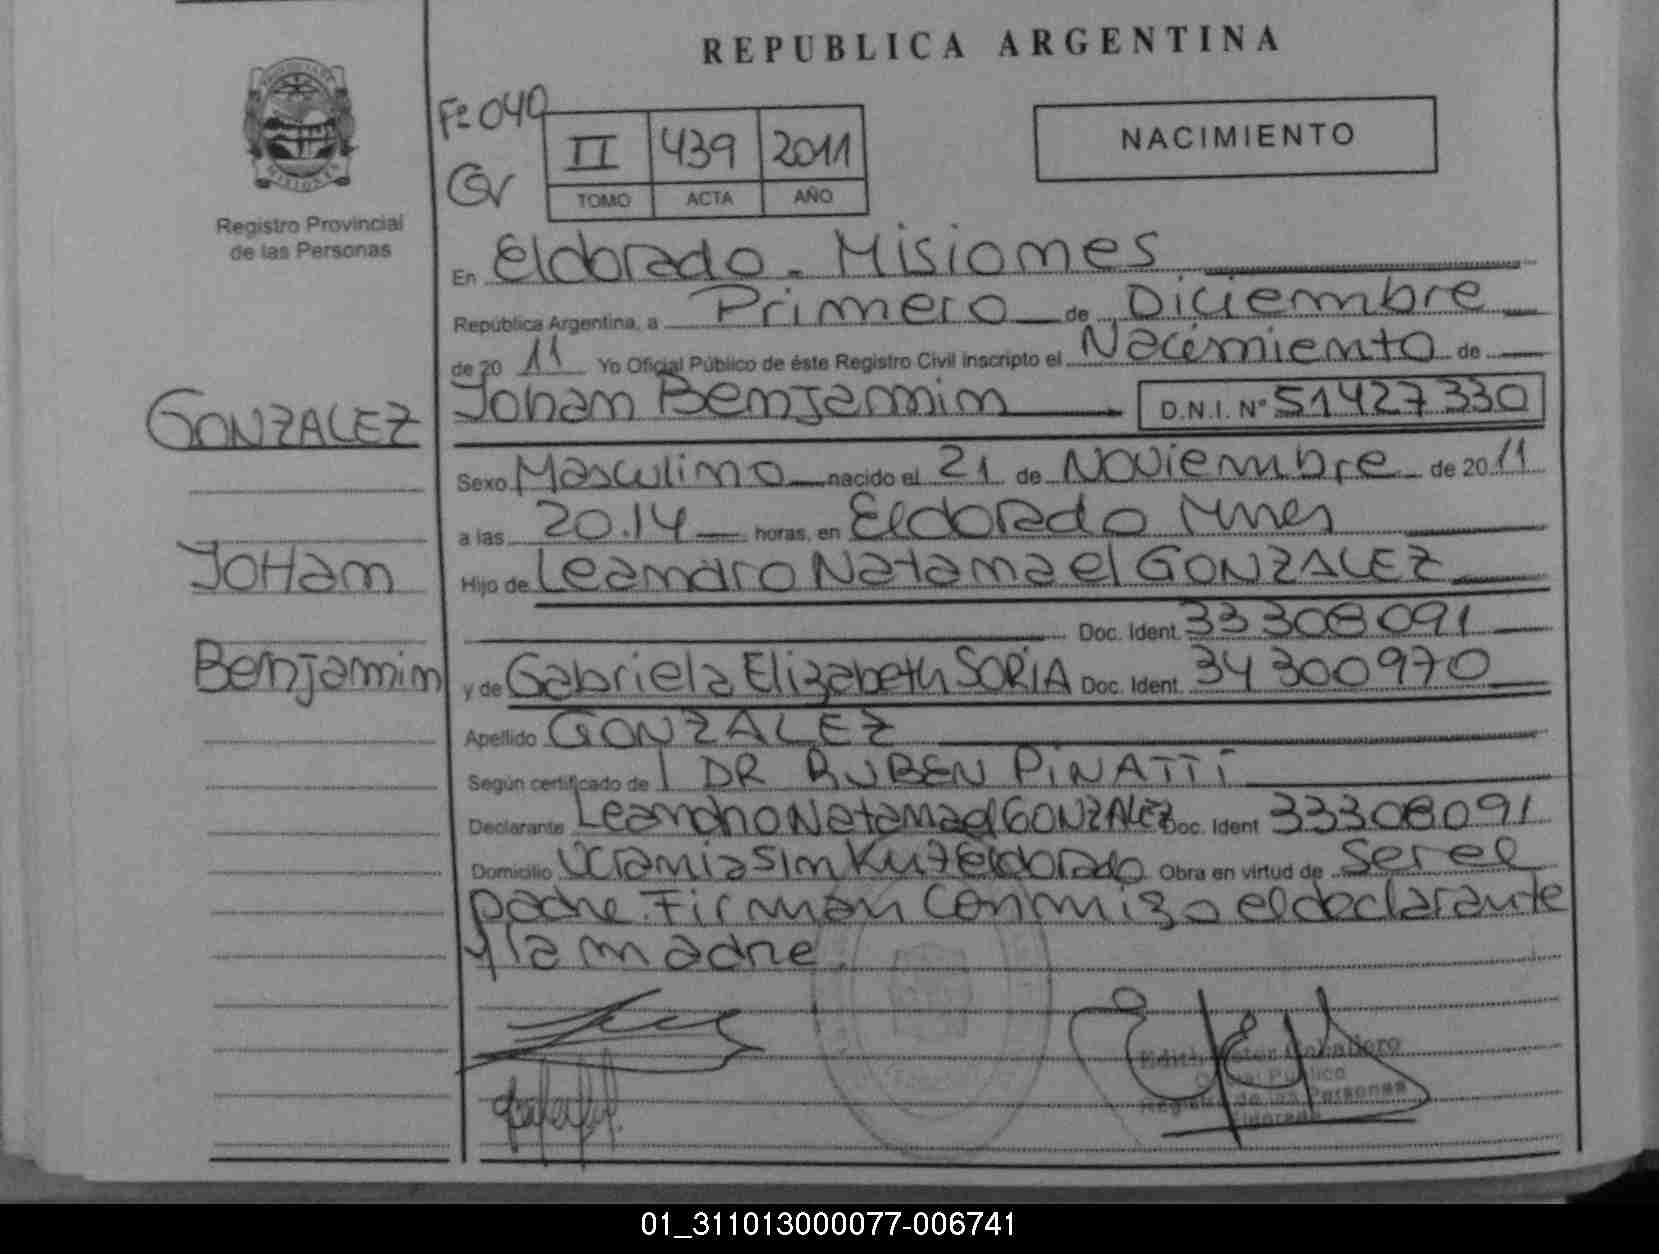 REPUBLICA ARGENTINA
Registro Provincial
de las Personas
Fº 040
II 439 2011
TOMO ACTA AÑO
NACIMIENTO
En Eldorado - Misiones
República Argentina, a Primero de Diciembre
de 20 11 Yo Oficial Público de éste Registro Civil inscripto el Nacimiento de
GONZALEZ
Johan Benjamin D.N.I. Nº 51427330
Sexo Masculino nacido el 21 de Noviembre de 20 11
a las 20.14 horas, en Eldorado Mnes
JOHan
Hijo de Leandro Natanael GONZALEZ
Doc. Ident. 33308091
Benjamin
y de Gabriela Elizabeth SORIA Doc. Ident. 34300970
Apellido GONZALEZ
Según certificado de DR RUBEN PINATTI
Declarante Leandro Natanael GONZALEZ Doc. Ident 33308091
Domicilio Ucrania s/n Km 7 Eldorado Obra en virtud de Ser el
padre. Firman conmigo el declarante
y la madre.
Edith Ester Caballero
Oficial Público
Registro de las Personas
Eldorado
01_311013000077-006741